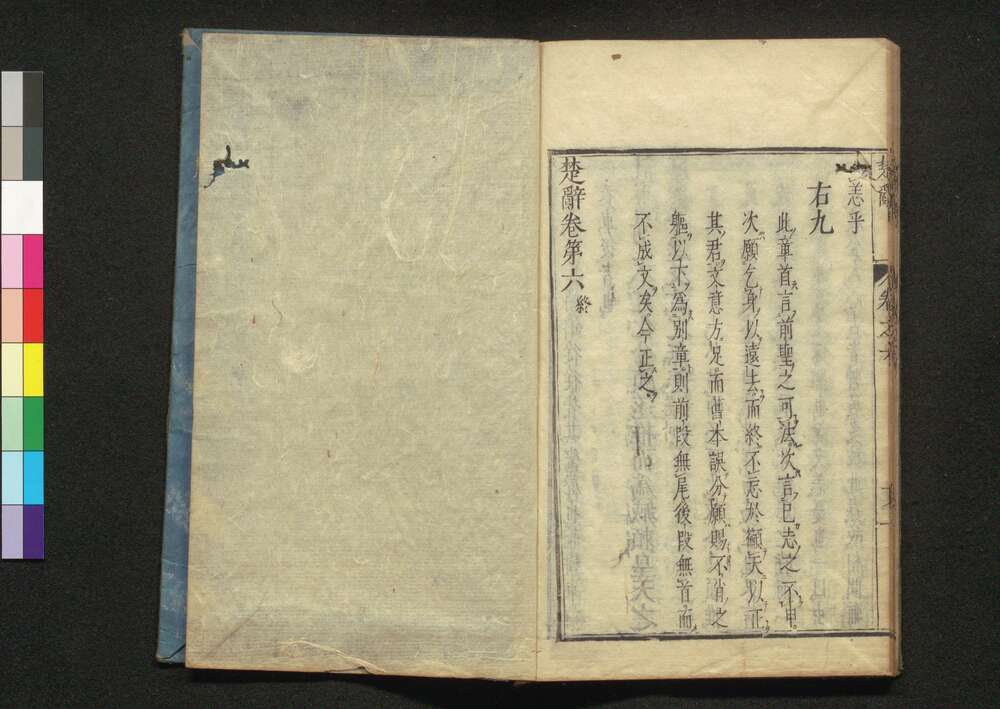 恙乎
右九
此章首言前聖之可法次言己志之不申
次願乞身以遠去而終不忘於籲天以正
其君文意方足而舊本誤分願賜不肖之
軀以下為別章則前段無尾後段無首而
不成文矣今正之
楚辭卷第六 終
楚辭 卷之六